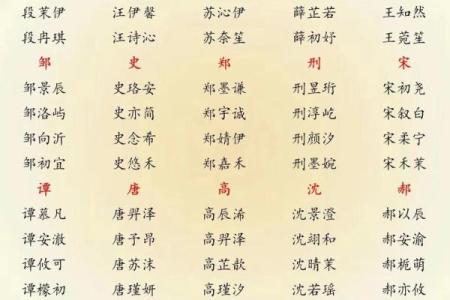 段茉伊 汪伊馨 苏沁伊 薛芷若 王知然
段冉琪 汪诗沁 苏奈笙 薛初妤 王菀笙
邹 史 郑 刑 宋
邹景辰 史珞安 郑墨谦 刑昱珩 宋初尧
邹洛屿 史亦简 郑宇诚 刑淳屹 宋叙白
邹向沂 史念希 郑婧伊 刑颜汐 宋柔宁
邹初宜 史悠禾 郑嘉禾 刑墨婉 宋禾茉
谭 唐 高 沈 郝
谭慕凡 唐羿泽 高辰浠 沈景澄 郝以辰
谭安澈 唐予昂 高羿泽 沈翊和 郝安渝
谭攸可 唐苏沫 高芷歆 沈晴茉 郝栀萌
谭檬初 唐瑾妍 高瑾汐 沈若瑶 郝亦攸